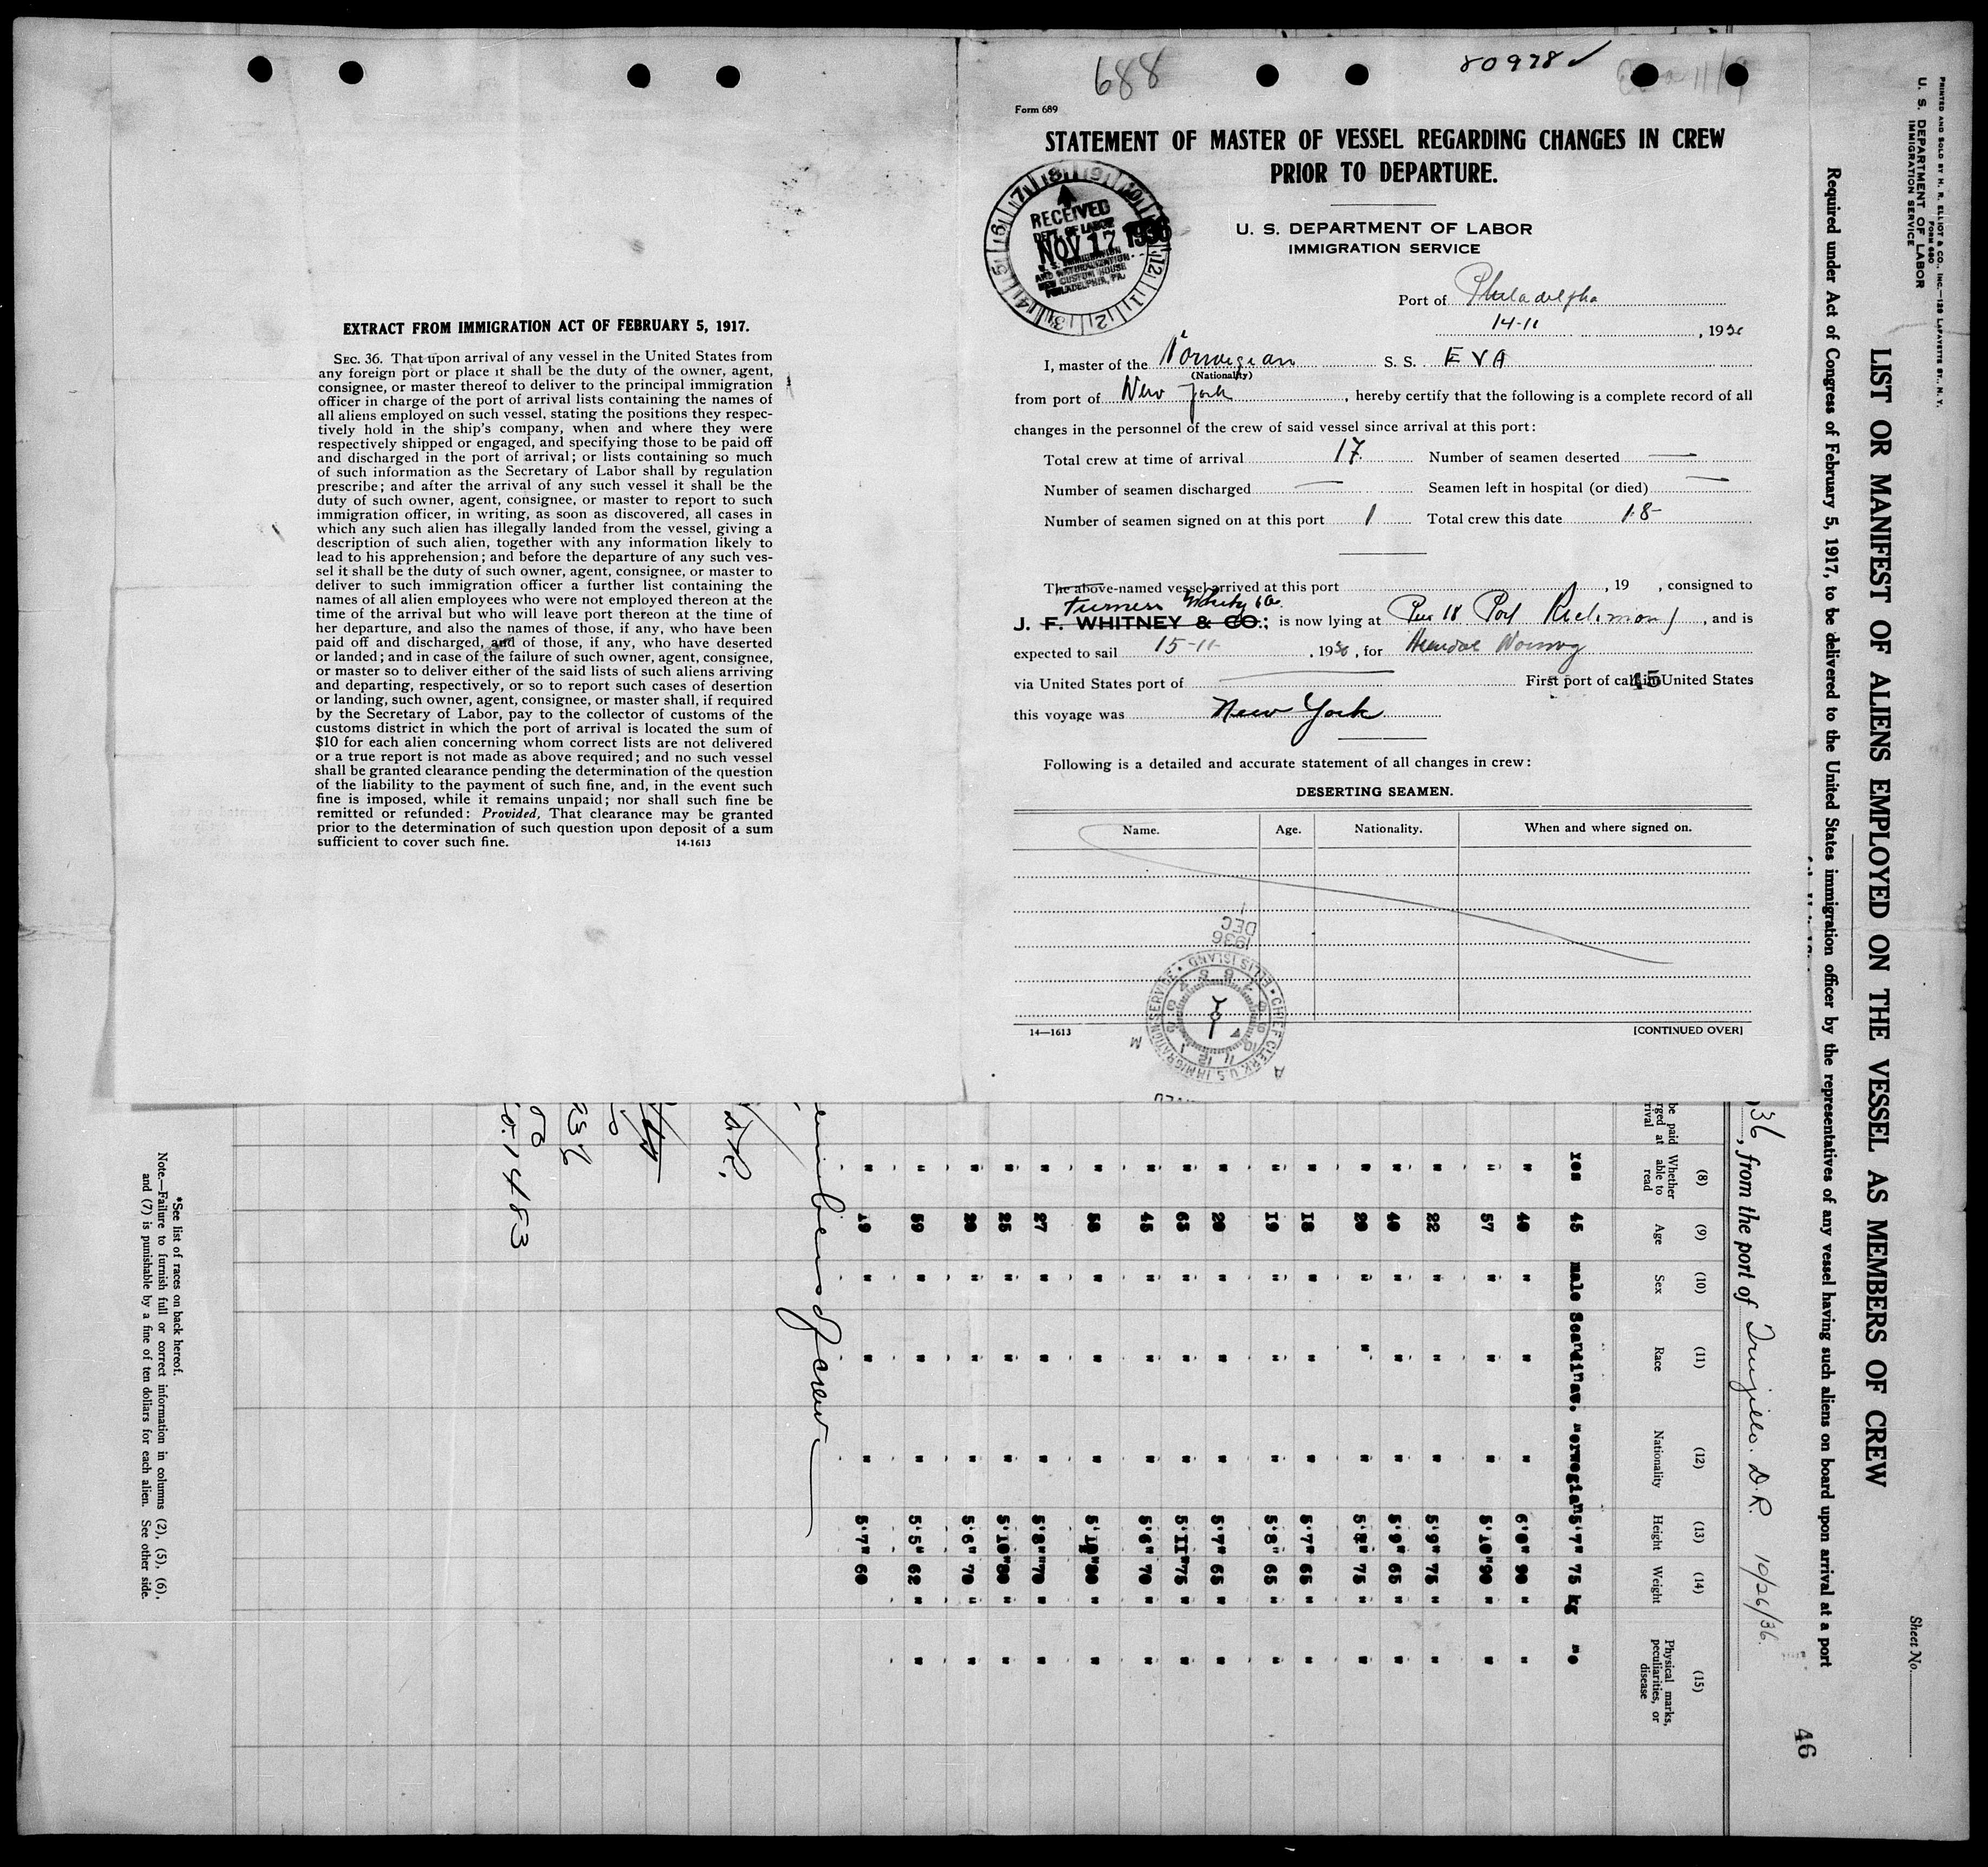 688
80978 ✓
Form 689
STATEMENT OF MASTER OF VESSEL REGARDING CHANGES IN CREW
PRIOR TO DEPARTURE.
RECEIVED
DEPT. OF LABOR
NOV 17 1936
U. S. IMMIGRATION
AND NATURALIZATION
NEW CUSTOM HOUSE
PHILADELPHIA, PA.
U. S. DEPARTMENT OF LABOR
IMMIGRATION SERVICE
Port of Philadelpha
14-11, 1936
I, master of the Norwegian S. S. EVA
(Nationality)
from port of New York, hereby certify that the following is a complete record of all
changes in the personnel of the crew of said vessel since arrival at this port:
Total crew at time of arrival 17 Number of seamen deserted —
Number of seamen discharged — Seamen left in hospital (or died) —
Number of seamen signed on at this port 1 Total crew this date 18-
The above-named vessel arrived at this port , 19 , consigned to
J. F. WHITNEY & CO.; is now lying at Pier 18 Port Richmond, and is
expected to sail 15-11-, 1936, for Norway
via United States port of — First port of call in United States
45
this voyage was New York
Following is a detailed and accurate statement of all changes in crew:
DESERTING SEAMEN.
Name. Age. Nationality. When and where signed on.
1936
DEC
1
CHIEF CLERK U.S. IMMIGRATION SERVICE • ELLIS ISLAND •
14—1613 [CONTINUED OVER]
EXTRACT FROM IMMIGRATION ACT OF FEBRUARY 5, 1917.
SEC. 36. That upon arrival of any vessel in the United States from
any foreign port or place it shall be the duty of the owner, agent,
consignee, or master thereof to deliver to the principal immigration
officer in charge of the port of arrival lists containing the names of
all aliens employed on such vessel, stating the positions they respec-
tively hold in the ship's company, when and where they were
respectively shipped or engaged, and specifying those to be paid off
and discharged in the port of arrival; or lists containing so much
of such information as the Secretary of Labor shall by regulation
prescribe; and after the arrival of any such vessel it shall be the
duty of such owner, agent, consignee, or master to report to such
immigration officer, in writing, as soon as discovered, all cases in
which any such alien has illegally landed from the vessel, giving a
description of such alien, together with any information likely to
lead to his apprehension; and before the departure of any such ves-
sel it shall be the duty of such owner, agent, consignee, or master to
deliver to such immigration officer a further list containing the
names of all alien employees who were not employed thereon at the
time of the arrival but who will leave port thereon at the time of
her departure, and also the names of those, if any, who have been
paid off and discharged, and of those, if any, who have deserted
or landed; and in case of the failure of such owner, agent, consignee,
or master so to deliver either of the said lists of such aliens arriving
and departing, respectively, or so to report such cases of desertion
or landing, such owner, agent, consignee, or master shall, if required
by the Secretary of Labor, pay to the collector of customs of the
customs district in which the port of arrival is located the sum of
$10 for each alien concerning whom correct lists are not delivered
or a true report is not made as above required; and no such vessel
shall be granted clearance pending the determination of the question
of the liability to the payment of such fine, and, in the event such
fine is imposed, while it remains unpaid; nor shall such fine be
remitted or refunded: Provided, That clearance may be granted
prior to the determination of such question upon deposit of a sum
sufficient to cover such fine. 14-1613
PRINTED AND SOLD BY H. R. ELLIOT & CO., INC.—129 LAFAYETTE ST., N. Y.
FORM 680
U. S. DEPARTMENT OF LABOR
IMMIGRATION SERVICE
Sheet No.
LIST OR MANIFEST OF ALIENS EMPLOYED ON THE VESSEL AS MEMBERS OF CREW
Required under Act of Congress of February 5, 1917, to be delivered to the United States immigration officer by the representatives of any vessel having such aliens on board upon arrival at a port
46
36, from the port of Trujillo. D.R. 10/26/36.
(8) (9) (10) (11) (12) (13) (14) (15)
Whether able to read Age Sex Race Nationality Height Weight Physical marks, peculiarities, or disease
Yes 45 male Scandinav. Norwegian 5'7" 75 kg No
" 40 " " " 6'0" 90 " "
" 57 " " " 5'10" 90 " "
" 22 " " " 5'9" 75 " "
" 40 " " " 5'9" 65 " "
" 20 " " " 5'8" 75 " "
" 18 " " " 5'7" 65 " "
" 19 " " " 5'8" 65 " "
" 20 " " " 5'7" 65 " "
" 63 " " " 5'11" 75 " "
" 45 " " " 5'6" 70 " "
" 58 " " " 5'10" 80 " "
" 27 " " " 5'8" 70 " "
" 25 " " " 5'10" 80 " "
" 20 " " " 5'6" 70 " "
" 59 " " " 5'5" 62 " "
" 19 " " " 5'7" 60
of crew
1483
*See list of races on back hereof.
Note.—Failure to furnish full or correct information in columns (2), (5), (6),
and (7) is punishable by a fine of ten dollars for each alien. See other side.